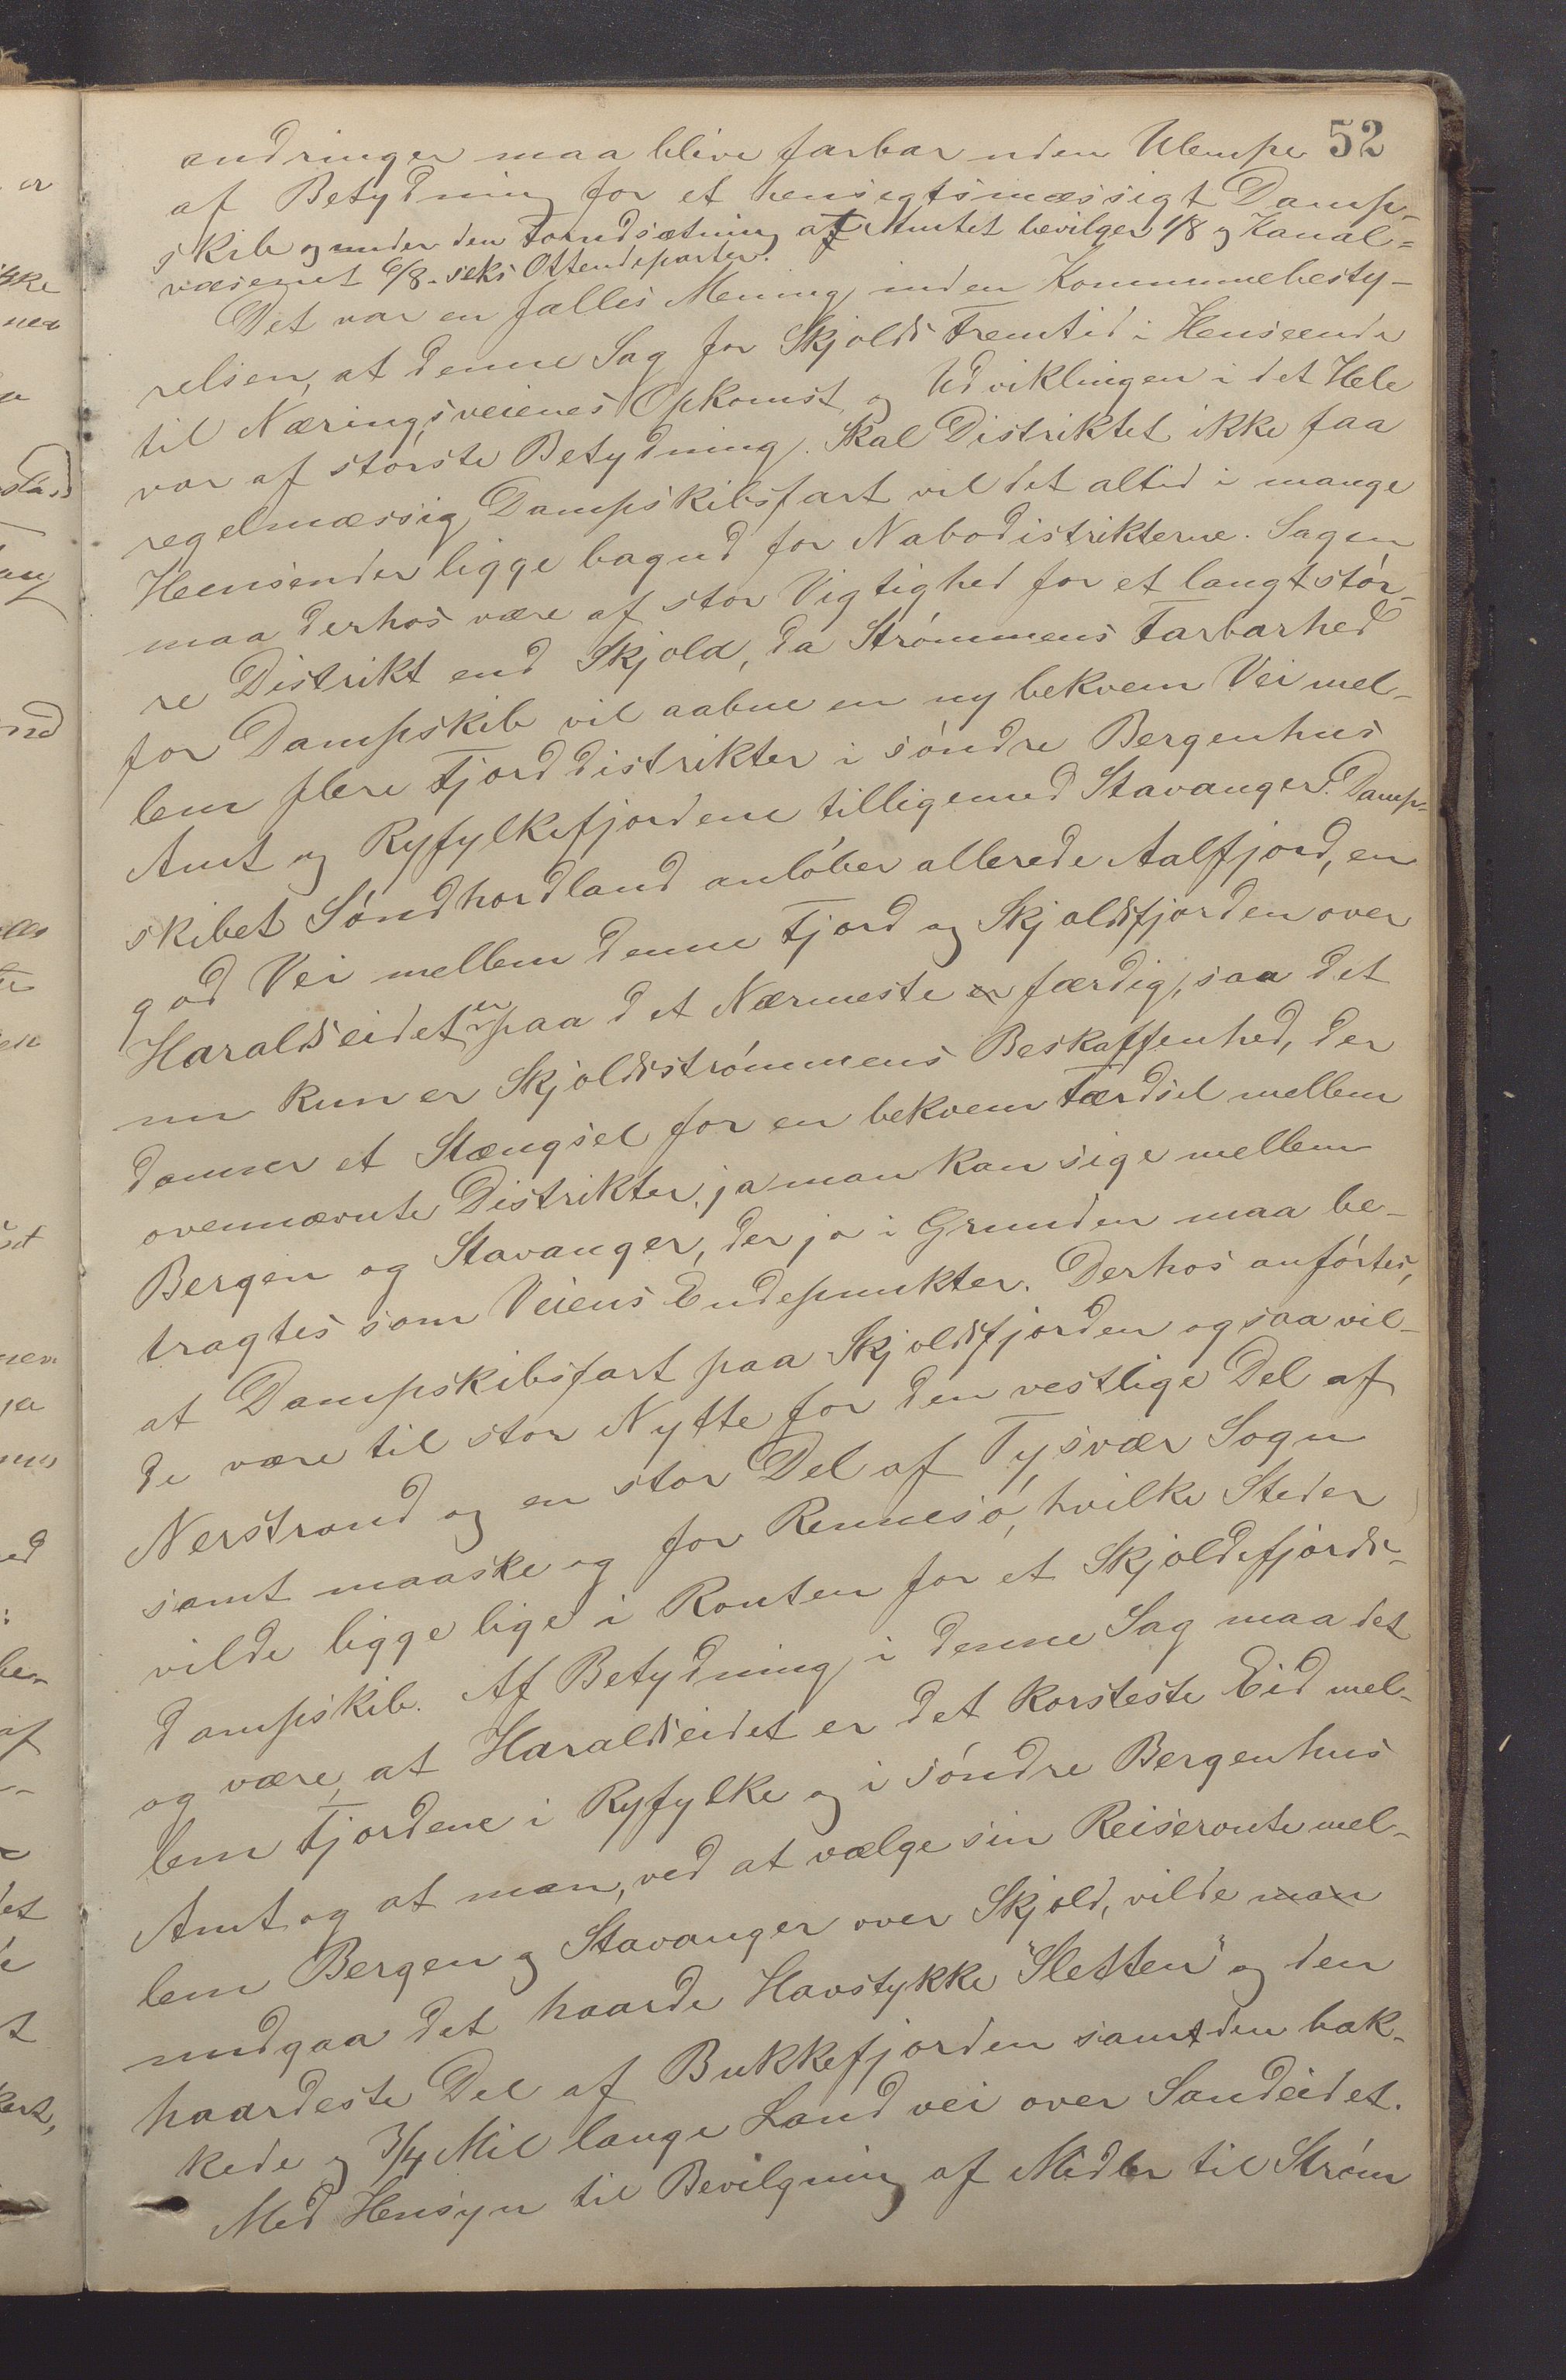 52
andringer maa blive farbar uden Ulempe
af Betydning for et hensigtsmæssigt Damp-
skib og under den Forudsætning at Amtet bevilger 1/8 og Kanal-
væsenet 6/8 - seks Ottendeparter.
Det var en fælles Mening inden Kommunebesty-
relsen, at denne Sag for Skjolds Fremtid i Henseende
til Næringsveienes Opkomst og Udviklingen i det Hele
var af største Betydning. Skal Distriktet ikke faa
regelmæssig Dampskibsfart vil det altid i mange
Heenseender ligge bagud for Nabodistrikterne. Sagen
maa derhos være af stor Vigtighed for et langt stør-
re Distrikt end Skjold, da Strømmens Farbarhed
for Dampskib vil aabne en ny bekvem Vei mel-
lem flere Fjorddistrikter i søndre Bergenhus
Amt og Ryfylkefjordene tilligemed Stavanger. Damp-
skibet Søndhordland anløber allerede Aalfjord, en
god Vei mellem denne Fjord og Skjoldsfjorden over
Haraldseidet er paa det Nærmeste er færdig, saa det
nu kun er Skjoldsstrømmens Beskaffenhed, der
danner et Stængsel for en bekvem Færdsel mellem
ovennævnte Distrikter, ja man kan sige mellem
Bergen og Stavanger, der jo i Grunden maa be-
tragtes som Veiens Endepunkter. Derhos anførtes,
at Dampskibsfart paa Skjoldsfjorden ogsaa vil-
de være til stor Nytte for den vestlige Del af
Nerstrand og en stor Del af Tysvær Sogn
samt maaske og for Rennesø, hvilke Steder
vilde ligge lige i Routen for et Skjoldefjords-
dampskib. Af Betydning i denne Sag maa det
og være, at Haraldseidet er det korteste Eid mel-
lem Fjordene i Ryfylke og i søndre Bergenhus
Amt og at man, ved at vælge sin Reiseroute mel-
lem Bergen og Stavanger over Skjold, vilde man
undgaa det haarde Havstykke "Sletten" og den
haardeste Del af Bukkefjorden samt den bak-
kede og 3/4 Mil lange Landvei over Sandeidet.
Med Hensyn til Bevilgning af Midler til Strøm